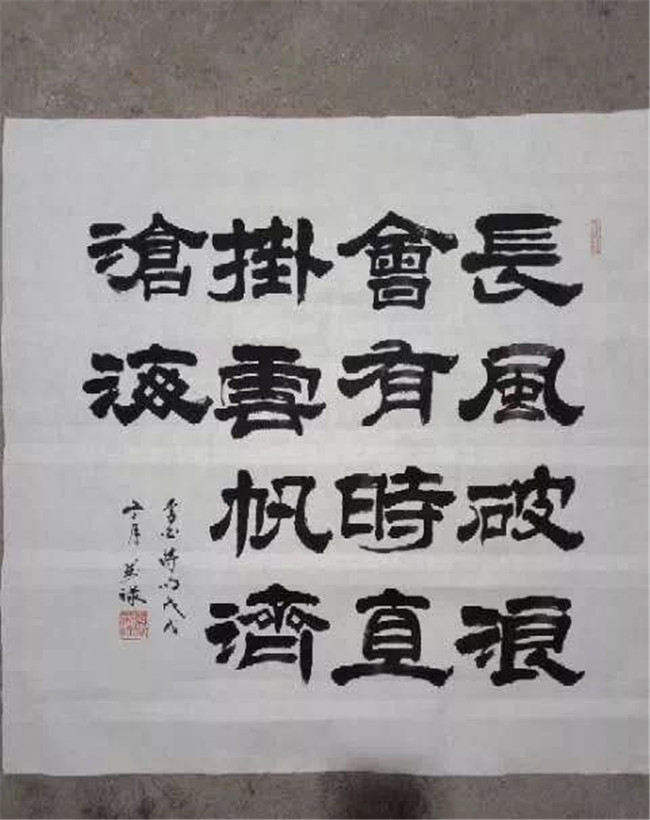 長風破浪
會有時直
掛雲帆濟
滄海
李白詩句戊戌
月